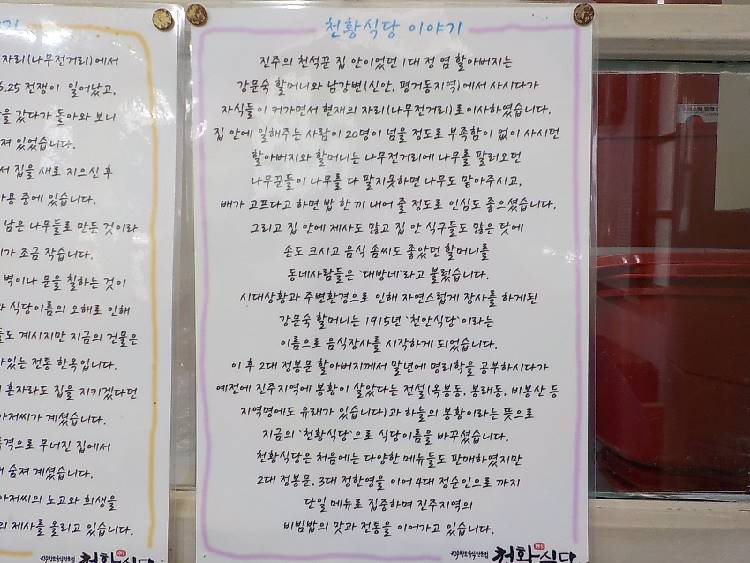 자리(나무전거리)에서
6.25 전쟁이 일어났고,
을 갔다가 돌아와 보니
져 있었습니다.
서 집을 새로 지으신 후
사용 중에 있습니다.
남은 나무들로 만든 것이라
가 조금 작습니다.
벽이나 문을 칠하는 것이
식당이름의 오해로 인해
들도 계시지만 지금의 건물은
있는 전통 한옥입니다.
혼자라도 집을 지키겠다던
아저씨가 계셨습니다.
폭격으로 무너진 집에서
숨져 계셨습니다.
아저씨의 노고와 희생을
제사를 올리고 있습니다.
천황식당 이야기
진주의 천석꾼 집 안이었던 1대 정 염 할아버지는
강문숙 할머니와 남강변(신안, 평거동지역)에서 사시다가
자식들이 커가면서 현재의 자리(나무전거리)로 이사하였습니다.
집 안에 일해주는 사람이 20명이 넘을 정도로 부족함이 없이 사시던
할아버지와 할머니는 나무전거리에 나무를 팔러오던
나무꾼들이 나무를 다 팔지못하면 나무도 맡아주시고,
배가 고프다고 하면 밥 한 끼 내어 줄 정도로 인심도 좋으셨습니다.
그리고 집 안에 제사도 많고 집 안 식구들도 많은 덧에
손도 크시고 음식 솜씨도 좋았던 할머니를
동네사람들은 '대방네'라고 불렀습니다.
시대상황과 주변환경으로 인해 자연스럽게 장사를 하게된
강문숙 할머니는 1915년 '천안식당'이라는
이름으로 음식장사를 시작하게 되었습니다.
이 후 2대 정봉문 할아버지께서 말년에 명리학을 공부하시다가
예전에 진주지역에 봉황이 살았다는 전설(옥봉동, 봉래동, 비봉산 등
지역명에도 유래가 있습니다)과 하늘의 봉황이라는 뜻으로
지금의 '천황식당'으로 식당이름을 바꾸셨습니다.
천황식당은 처음에는 다양한 메뉴들도 판매하였지만
2대 정봉문, 3대 정한영을 이어 4대 정순인으로 까지
단일 메뉴로 집중하며 진주지역의
비빔밥의 맛과 전통을 이어가고 있습니다.
천황식당
천황식당